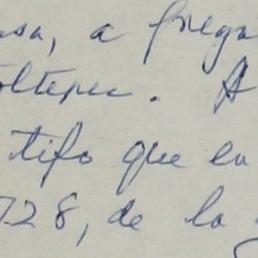 sa, a frega
oltepec. A
tifo que en
728, de la